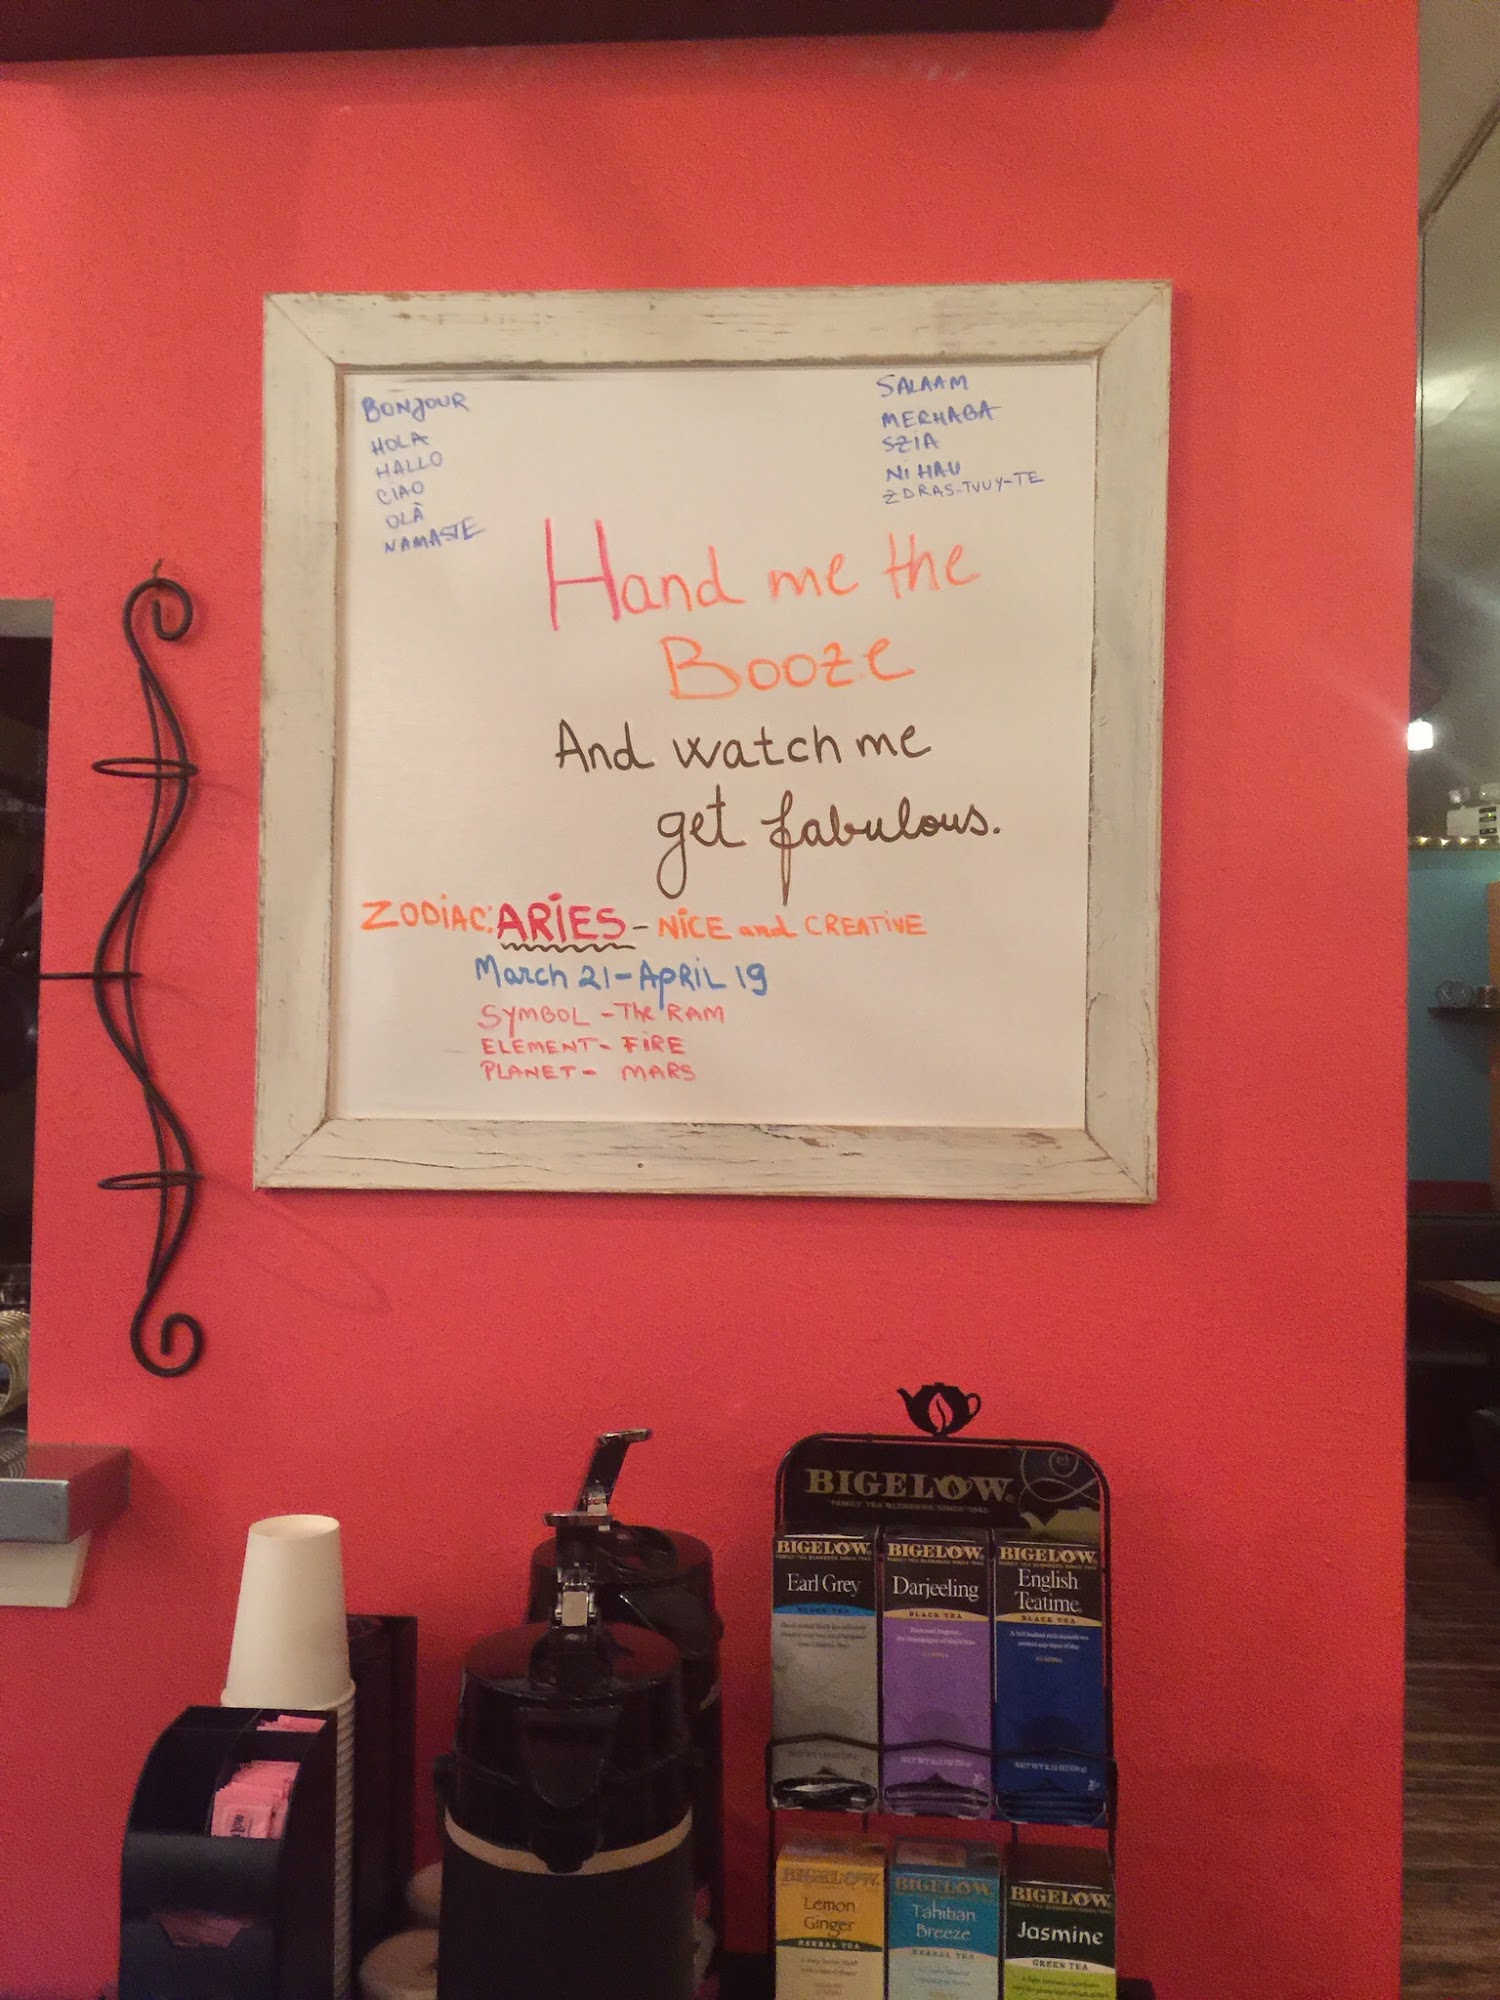 BONJOUR
HOLA
HALLO
CIAO
OLÀ
NAMASTE
SALAAM
MERHABA
SZIA
NI HAU
ZDRAS-TVUY-TE
Hand me the
Booze
And watch me
get fabulous.
ZODIAC: ARIES - NICE and CREATIVE
March 21 - APRIL 19
SYMBOL - The RAM
ELEMENT - FIRE
PLANET - MARS
BIGELOW
FAMILY TEA BLENDERS SINCE 1945
BIGELOW
Earl Grey
BLACK TEA
BIGELOW
Darjeeling
BLACK TEA
BIGELOW
English
Teatime
BLACK TEA
BIGELOW
Lemon
Ginger
HERBAL TEA
BIGELOW
Tahitian
Breeze
HERBAL TEA
BIGELOW
Jasmine
GREEN TEA